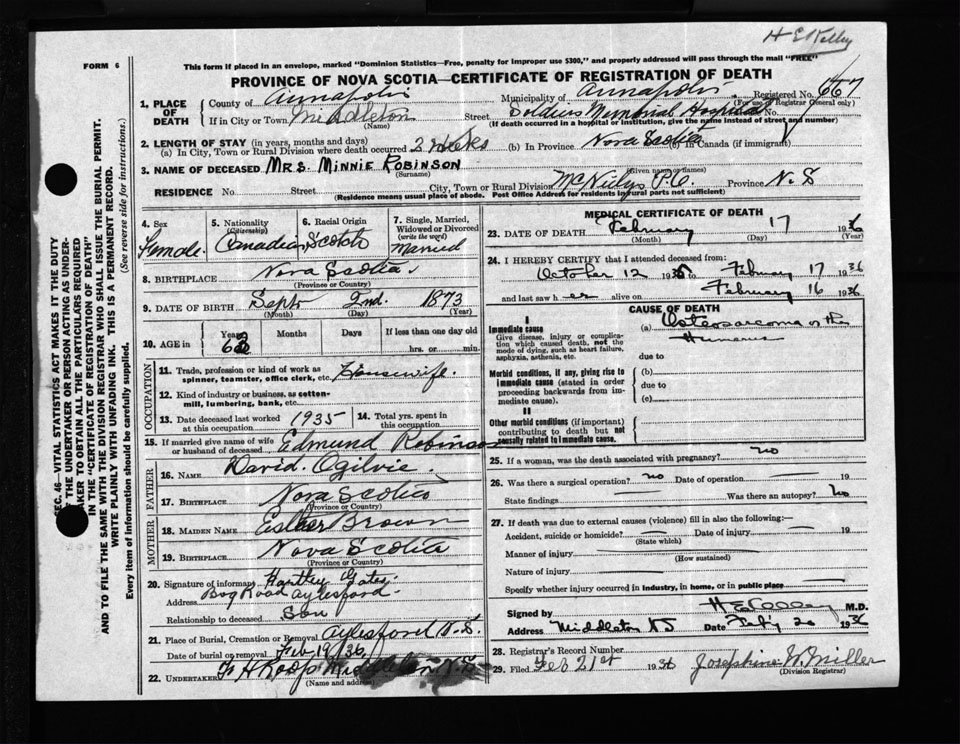 H E Kelley
FORM 6
This form if placed in an envelope, marked "Dominion Statistics—Free, penalty for improper use $300," and properly addressed will pass through the mail "FREE"
PROVINCE OF NOVA SCOTIA—CERTIFICATE OF REGISTRATION OF DEATH
SEC. 46—VITAL STATISTICS ACT MAKES IT THE DUTY
OF THE UNDERTAKER OR PERSON ACTING AS UNDER-
TAKER TO OBTAIN ALL THE PARTICULARS REQUIRED
IN THE "CERTIFICATE OF REGISTRATION OF DEATH"
AND TO FILE THE SAME WITH THE DIVISION REGISTRAR WHO SHALL ISSUE THE BURIAL PERMIT.
WRITE PLAINLY WITH UNFADING INK. THIS IS A PERMANENT RECORD.
Every item of information should be carefully supplied. (See reverse side for instructions.)
1. PLACE OF DEATH County of Annapolis Municipality of Annapolis Registered No. 667
(For use of Registrar General only)
If in City or Town Middleton Street Soldiers Memorial Hospital No.
(Name) (If death occurred in a hospital or institution, give the name instead of street and number)
2. LENGTH OF STAY (in years, months and days)
(a) In City, Town or Rural Division where death occurred 2 Weeks (b) In Province Nova Scotia (c) In Canada (if immigrant)
3. NAME OF DECEASED MRS. MINNIE ROBINSON
(Surname) (Given name or names)
RESIDENCE No. Street City, Town or Rural Division McNeilys P.O. Province N.S
(Residence means usual place of abode. Post Office Address for residents in rural parts not sufficient)
4. Sex Female.
5. Nationality (Citizenship) Canadian
6. Racial Origin Scotch
7. Single, Married, Widowed or Divorced (write the word) Married
8. BIRTHPLACE Nova Scotia
(Province or Country)
9. DATE OF BIRTH Sept 2nd. 1873
(Month) (Day) (Year)
10. AGE in Years Months Days If less than one day old
hrs. or min.
OCCUPATION
11. Trade, profession or kind of work as
spinner, teamster, office clerk, etc. Housewife.
12. Kind of industry or business, as cotton-
mill, lumbering, bank, etc.
13. Date deceased last worked at this occupation 1935
14. Total yrs. spent in this occupation
15. If married give name of wife
or husband of deceased Edmund Robinson
FATHER
16. NAME David. Ogilvie
17. BIRTHPLACE Nova Scotia
(Province or Country)
MOTHER
18. MAIDEN NAME Esther Brown
19. BIRTHPLACE Nova Scotia
(Province or Country)
20. Signature of informant Hartley Gates.
Address Bog Road Aylesford.
Relationship to deceased Son
21. Place of Burial, Cremation or Removal Aylesford N.S.
Date of burial or removal Feb 19/36.
22. UNDERTAKER F H Roop Middleton N.S
(Name and address)
MEDICAL CERTIFICATE OF DEATH
23. DATE OF DEATH February 17 1936
(Month) (Day) (Year)
24. I HEREBY CERTIFY that I attended deceased from:
October 12 1935 to February 17 1936
and last saw her alive on February 16 1936
CAUSE OF DEATH
I
Immediate cause
Give disease, injury or complica-
tion which caused death, not the
mode of dying, such as heart failure,
asphyxia, asthenia, etc.
(a) Osteosarcoma of the
Humerus
due to
Morbid conditions, if any, giving rise to
immediate cause (stated in order
proceeding backwards from im-
mediate cause).
(b)
due to
(c)
II
Other morbid conditions (if important)
contributing to death but not
causally related to immediate cause.
25. If a woman, was the death associated with pregnancy? no
26. Was there a surgical operation? no Date of operation 19
State findings Was there an autopsy? No
27. If death was due to external causes (violence) fill in also the following:—
Accident, suicide or homicide? Date of injury 19
(State which)
Manner of injury
(How sustained)
Nature of injury
Specify whether injury occurred in industry, in home, or in public place
Signed by H E Kelley M.D.
Address Middleton NS Date Feby 20 1936
28. Registrar's Record Number
29. Filed Feb 21st 1936 Josephine W. Miller
(Division Registrar)